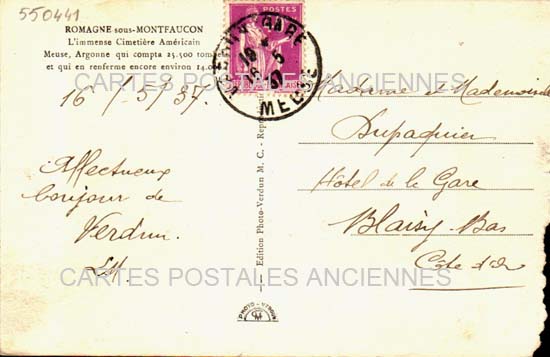 550441
ROMAGNE sous-MONTFAUCON
L'immense Cimetière Américain
Meuse, Argonne qui compta 25.500 tombes
et qui en renferme encore environ 14.0
16/5/37.
Affectueux
bonjour de
Verdun.
LM.
Edition Photo-Verdun M. C. - Repr
POSTES
VERDUN GARE
16 5
37
MEUSE
Madame et Mademoiselle
Dupaquier
Hôtel de la Gare
Blaisy-Bas
Côte d'Or
CARTES POSTALES ANCIENNES
CARTES POSTALES ANCIENNES
PHOTO-VERDUN